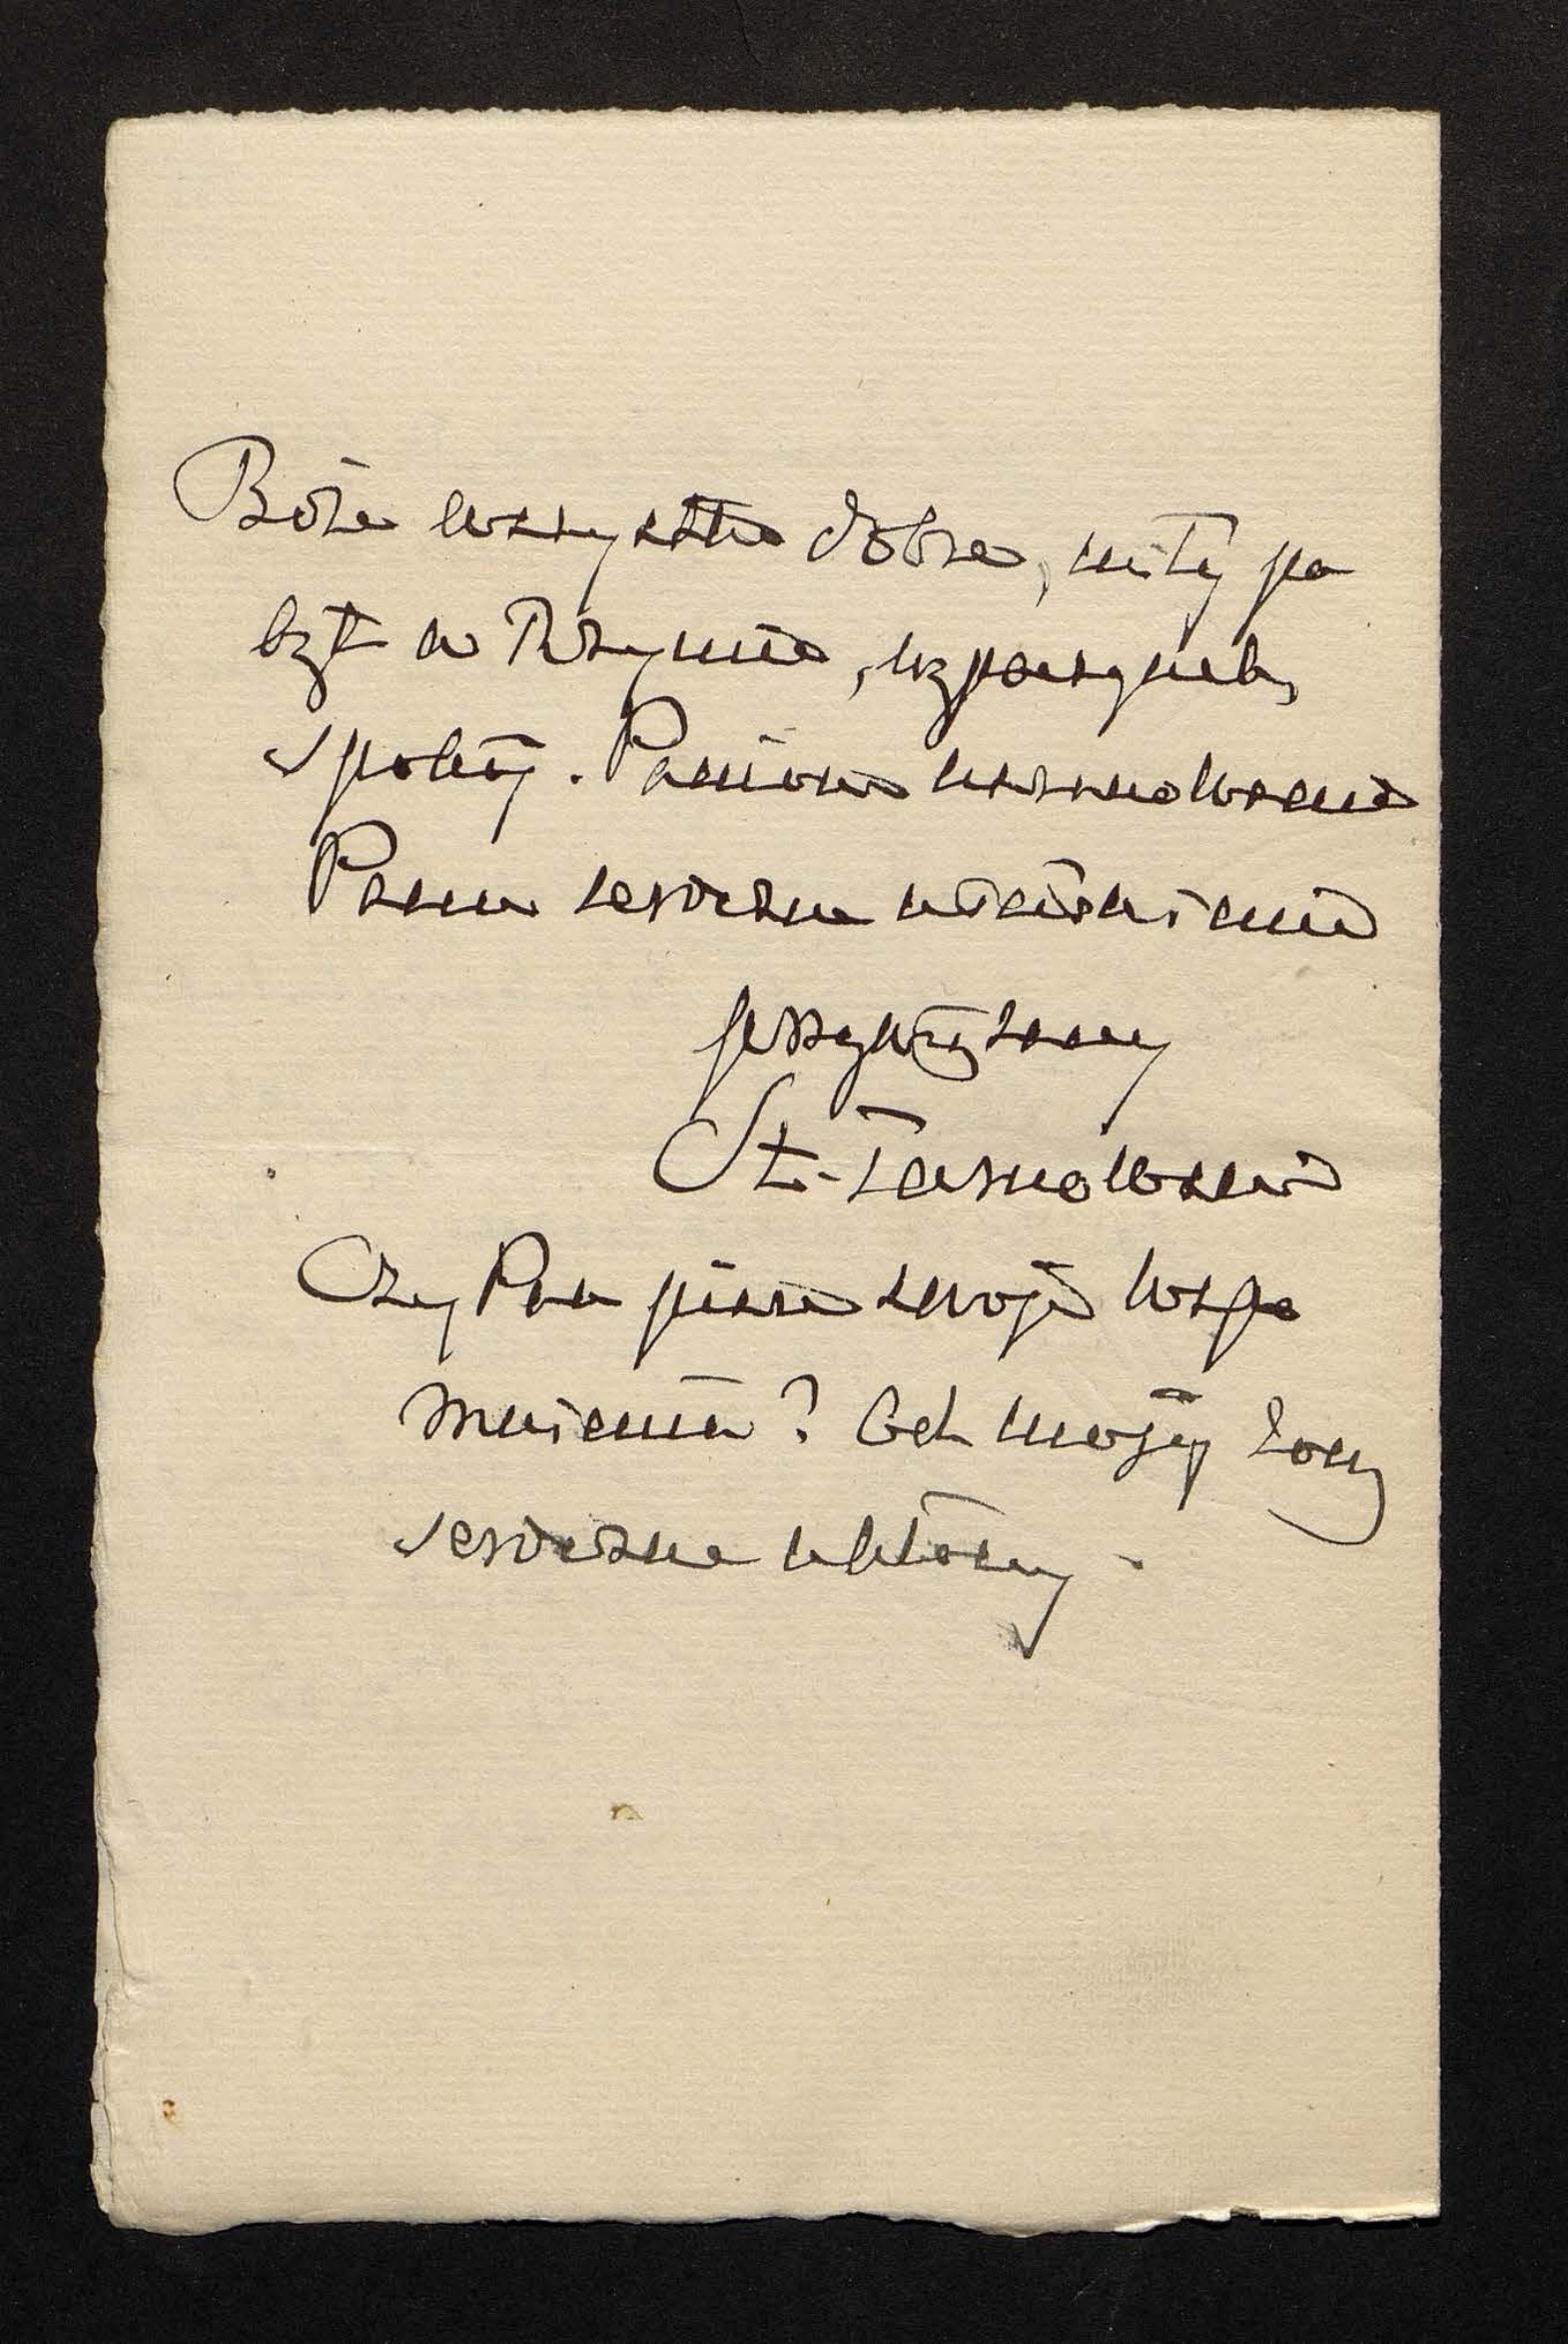 Boże wszystko dobre, miły po
byt w Rzymie, wypoczynek,
spokój. Paniom uszanowanie
Panu serdeczne uściśnienie
przywiązany
St. Tarnowski
Czy Pan pisze swoje wspo
mnienia? Od mojéj żony
serdeczne ukłony.